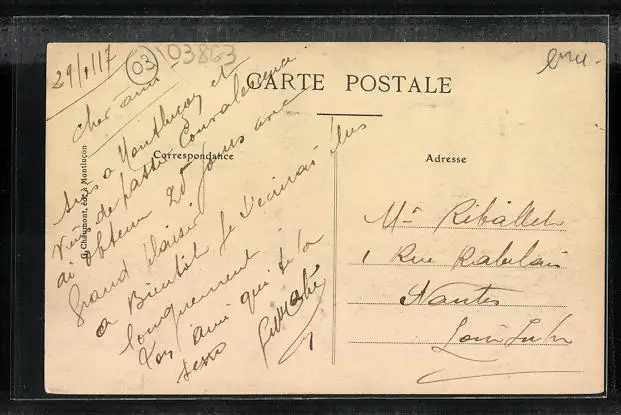 29/1 117
03
103863
CARTE POSTALE
Correspondance
Adresse
G. Chaumont, édit. à Montluçon
Cher ami
Suis à Montluçon et
viens de passer Convalescence
ai obtenu 25 jours avec
Grand plaisir
a Bientôt je t'écrirai plus
longuement
Ton ami qui te
serre
Mr Riballet
1 Rue Rabelais
Nantes
Loire Infre